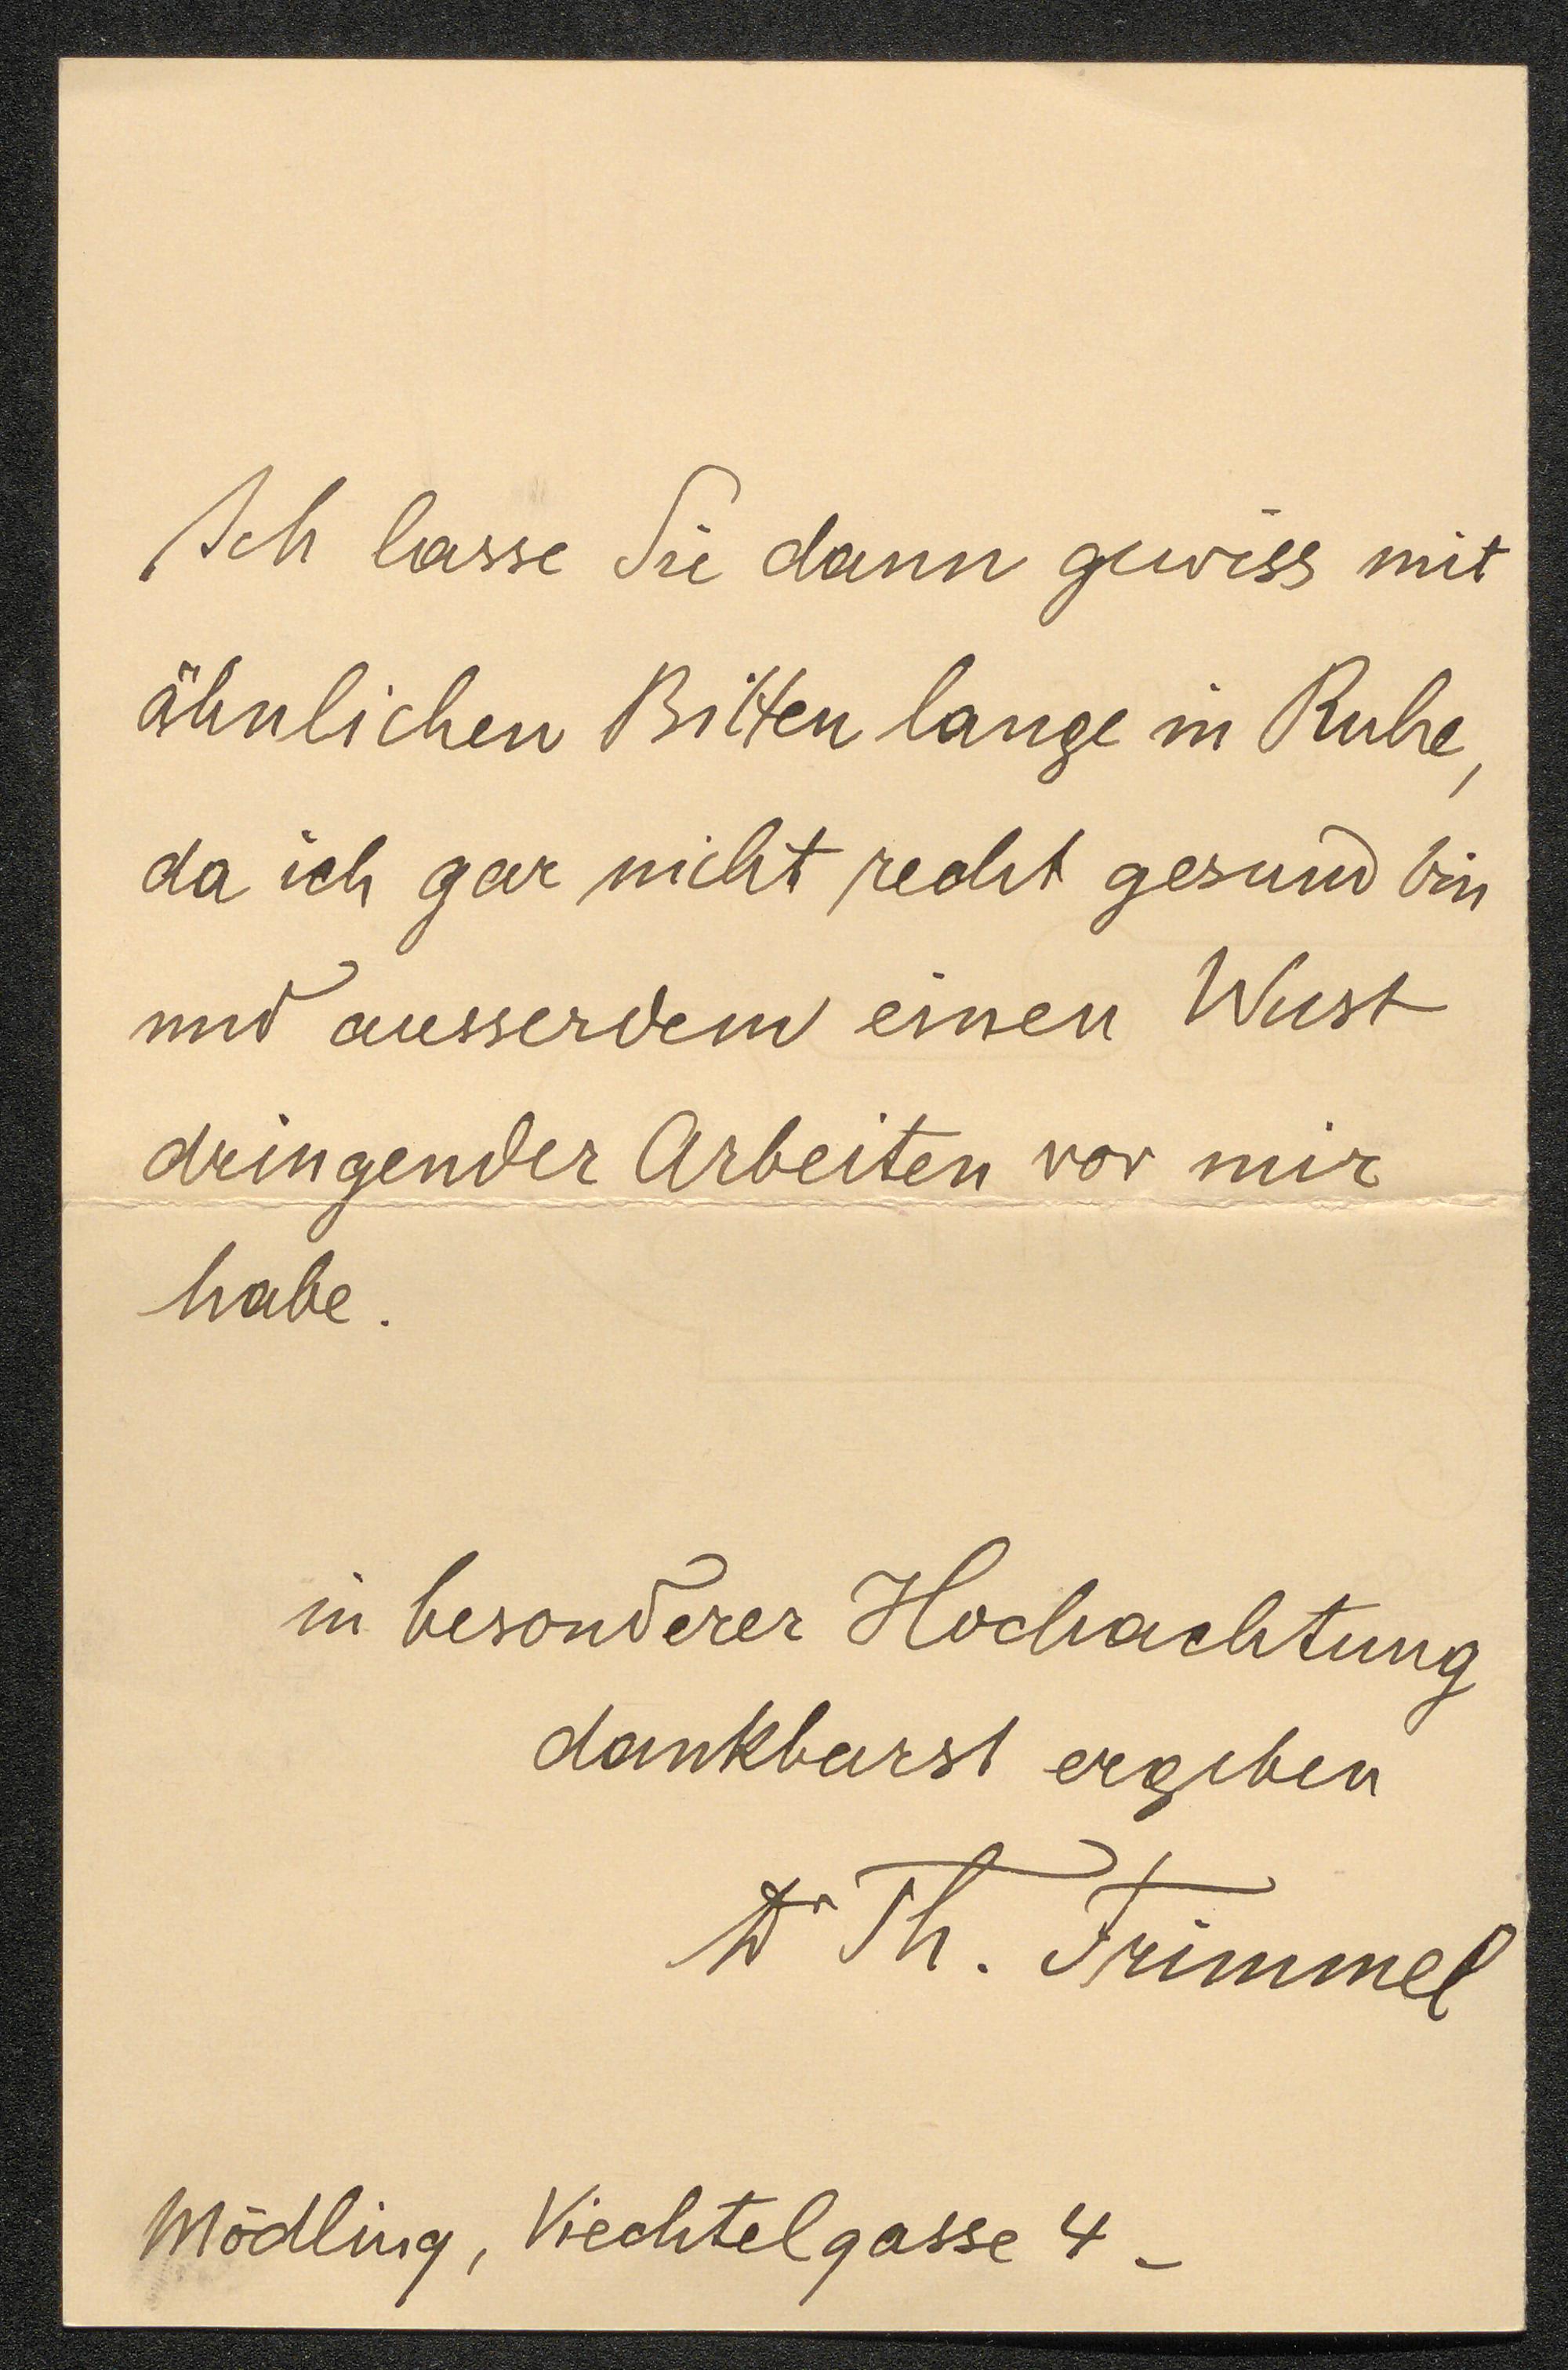 Ich lasse Sie dann gewiss mit
ähnlichen Bitten lange in Ruhe,
da ich gar nicht recht gesund bin
und ausserdem einen Wust
dringender Arbeiten vor mir
habe.
in besonderer Hochachtung
dankbarst ergeben
Dr Th. Frimmel
Mödling, Viechtelgasse 4 -